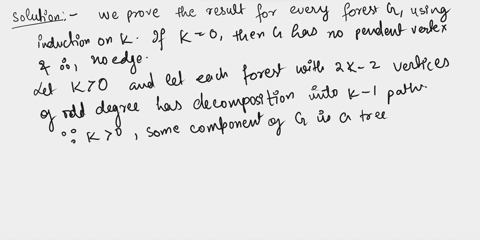 Solution:- we prove the result for every forest G, using
induction on K. If K = 0, then G has no pendent vertex
& ∴, no edge.
Let K > 0 and let each forest with 2K-2 vertices
of odd degree has decomposition into K-1 paths.
∵ K > 0, some component of G is a tree